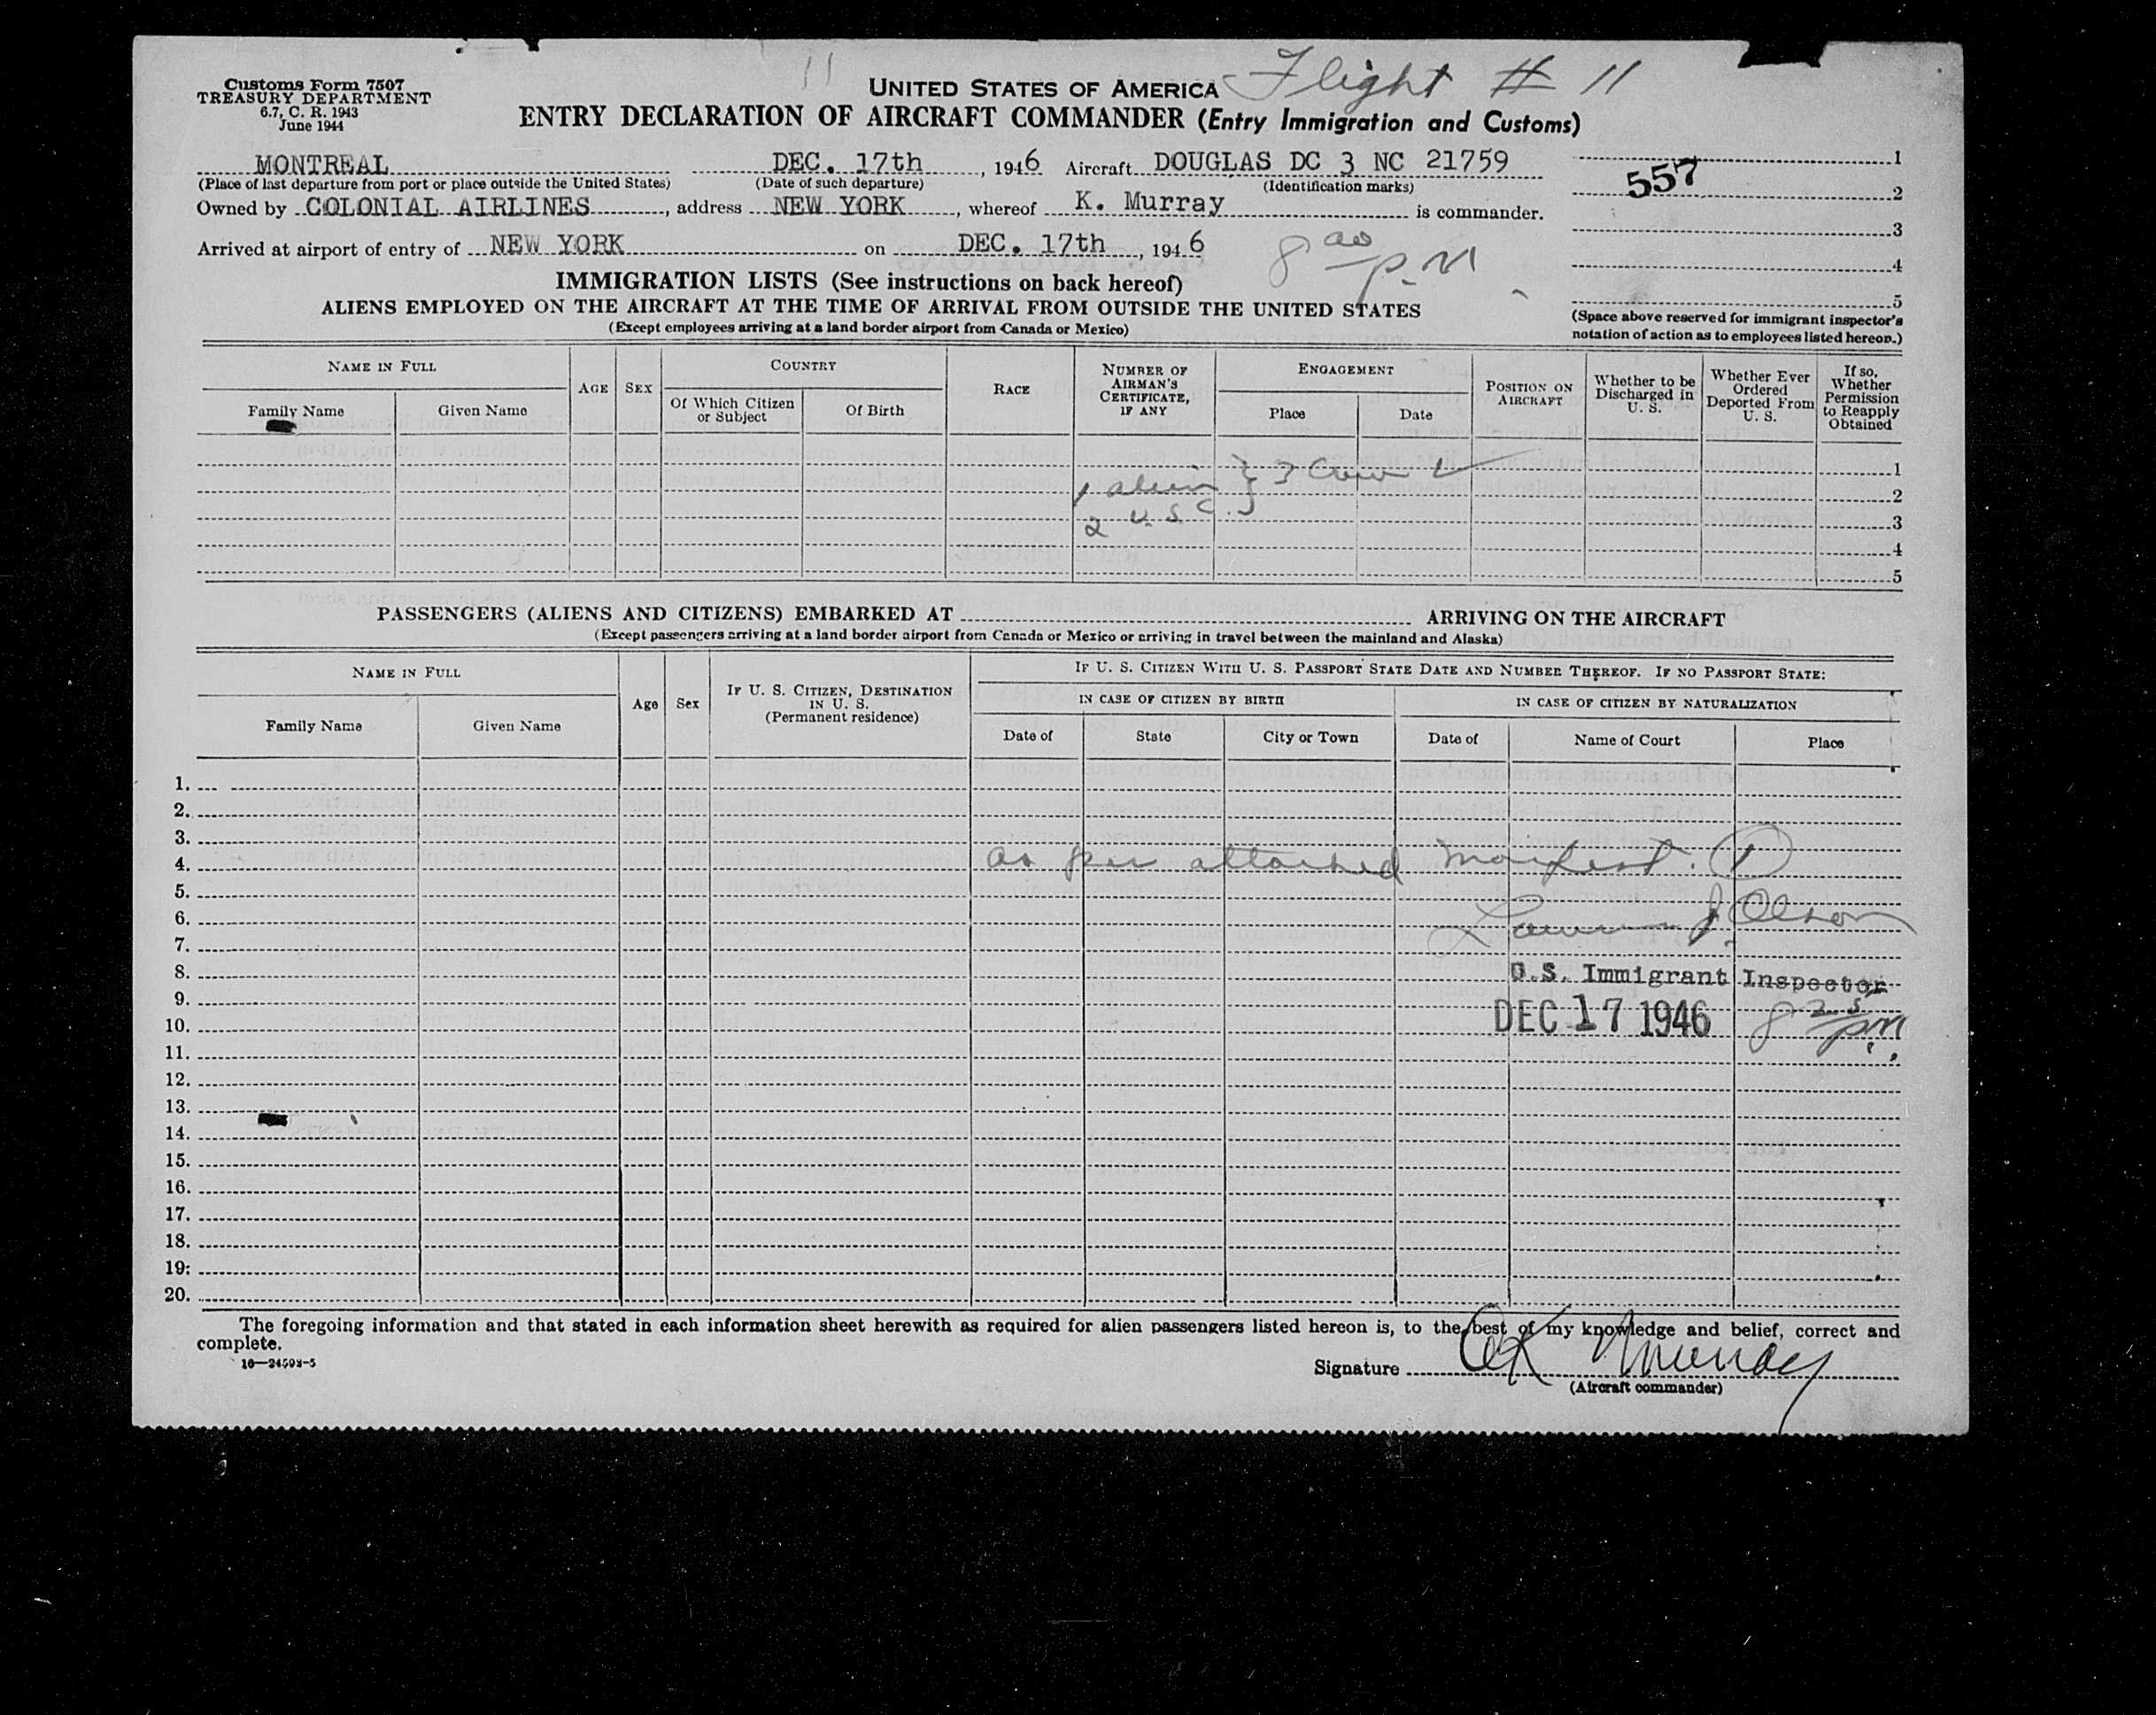 Customs Form 7507
TREASURY DEPARTMENT
6.7, C. R. 1943
June 1944
11
UNITED STATES OF AMERICA
Flight # 11
ENTRY DECLARATION OF AIRCRAFT COMMANDER (Entry Immigration and Customs)
MONTREAL DEC. 17th, 1946 Aircraft DOUGLAS DC 3 NC 21759
(Place of last departure from port or place outside the United States) (Date of such departure) (Identification marks)
Owned by COLONIAL AIRLINES, address NEW YORK, whereof K. Murray is commander.
Arrived at airport of entry of NEW YORK on DEC. 17th, 1946
8 00 P.M
1
557
2
3
4
5
(Space above reserved for immigrant inspector's
notation of action as to employees listed hereon.)
IMMIGRATION LISTS (See instructions on back hereof)
ALIENS EMPLOYED ON THE AIRCRAFT AT THE TIME OF ARRIVAL FROM OUTSIDE THE UNITED STATES
(Except employees arriving at a land border airport from Canada or Mexico)
NAME IN FULL
Family Name Given Name
AGE SEX
COUNTRY
Of Which Citizen or Subject
Of Birth
RACE
NUMBER OF AIRMAN'S CERTIFICATE, IF ANY
ENGAGEMENT
Place Date
POSITION ON AIRCRAFT
Whether to be Discharged in U. S.
Whether Ever Ordered Deported From U. S.
If so, Whether Permission to Reapply Obtained
1
1 alien } 3 Crew
2
2 U.S.C.
3
4
5
PASSENGERS (ALIENS AND CITIZENS) EMBARKED AT ARRIVING ON THE AIRCRAFT
(Except passengers arriving at a land border airport from Canada or Mexico or arriving in travel between the mainland and Alaska)
NAME IN FULL
Family Name Given Name
Age Sex
IF U. S. CITIZEN, DESTINATION IN U. S.
(Permanent residence)
IF U. S. CITIZEN WITH U. S. PASSPORT STATE DATE AND NUMBER THEREOF. IF NO PASSPORT STATE:
IN CASE OF CITIZEN BY BIRTH IN CASE OF CITIZEN BY NATURALIZATION
Date of State City or Town Date of Name of Court Place
1.
2.
3.
4. as per attached manifest. (1)
5.
6. J Olson
7.
8. U.S. Immigrant Inspector
9.
10. DEC 17 1946 8 25 PM
11.
12.
13.
14.
15.
16.
17.
18.
19.
20.
The foregoing information and that stated in each information sheet herewith as required for alien passengers listed hereon is, to the best of my knowledge and belief, correct and
complete.
16—24598-5
Signature K Murray
(Aircraft commander)